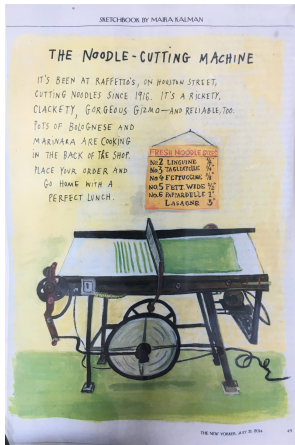 SKETCHBOOK BY MAIRA KALMAN
THE NOODLE-CUTTING MACHINE
IT'S BEEN AT RAFFETTO'S, ON HOUSTON STREET,
CUTTING NOODLES SINCE 1916. IT'S A RICKETY,
CLACKETY, GORGEOUS GIZMO—AND RELIABLE, TOO.
POTS OF BOLOGNESE AND
MARINARA ARE COOKING
IN THE BACK OF THE SHOP.
PLACE YOUR ORDER AND
GO HOME WITH A
PERFECT LUNCH.
FRESH NOODLE SIZES
No 2 LINGUINE
No 3 TAGLIATELLE
No 4 FETTUCCINE
No. 5 FETT. WIDE 1/2"
No. 6 PAPPARDELLE 1"
LASAGNE 3"
THE NEW YORKER, JULY 21, 2014